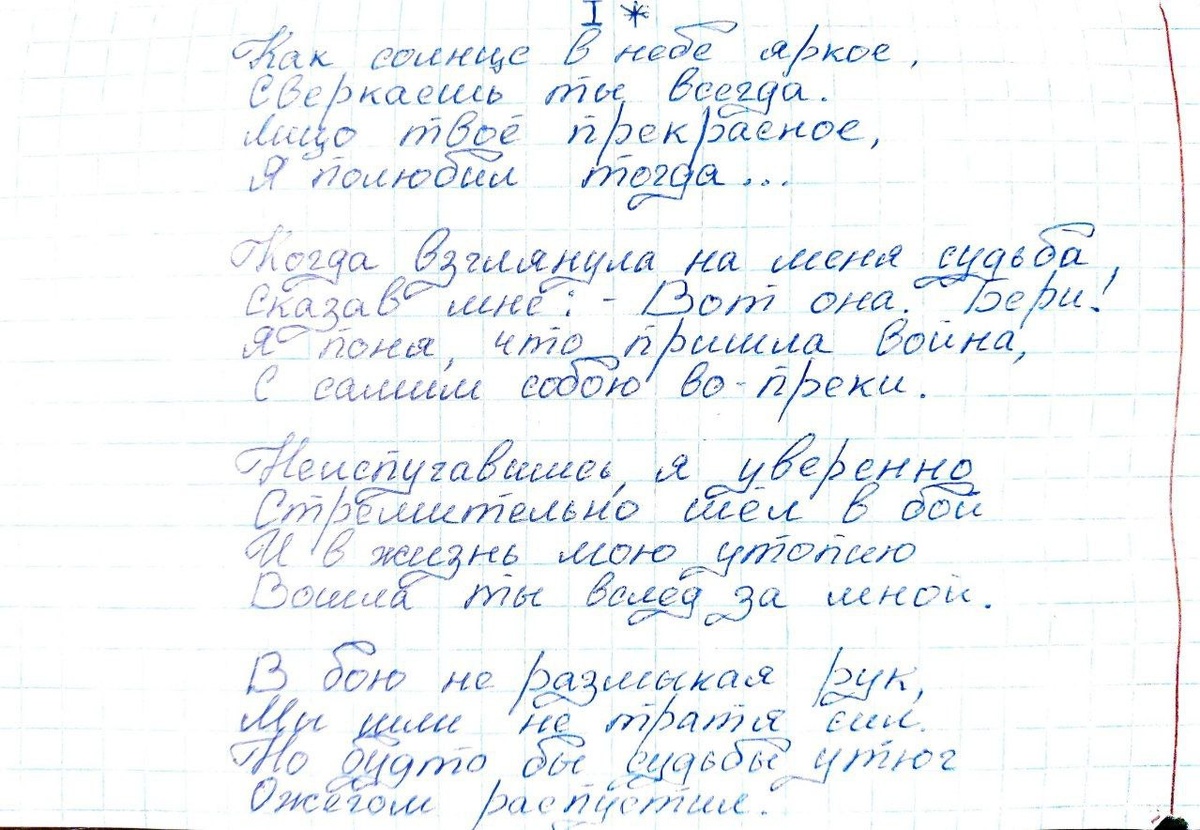 I *
Как солнце в небе яркое,
Сверкаешь ты всегда.
Лицо твоё прекрасное,
Я полюбил тогда...
Когда взглянула на меня судьба,
Сказав мне: - Вот она. Бери!
Я поня, что пришла война,
С самим собою во-преки.
Неиспугавшись, я уверенно
Стремительно шёл в бой
И в жизнь мою утопию
Вошла ты вслед за мной.
В бою не размыкая рук,
Мы шли не тратя сил.
Но будто бы судьбы утюг
Ожегом распустил.